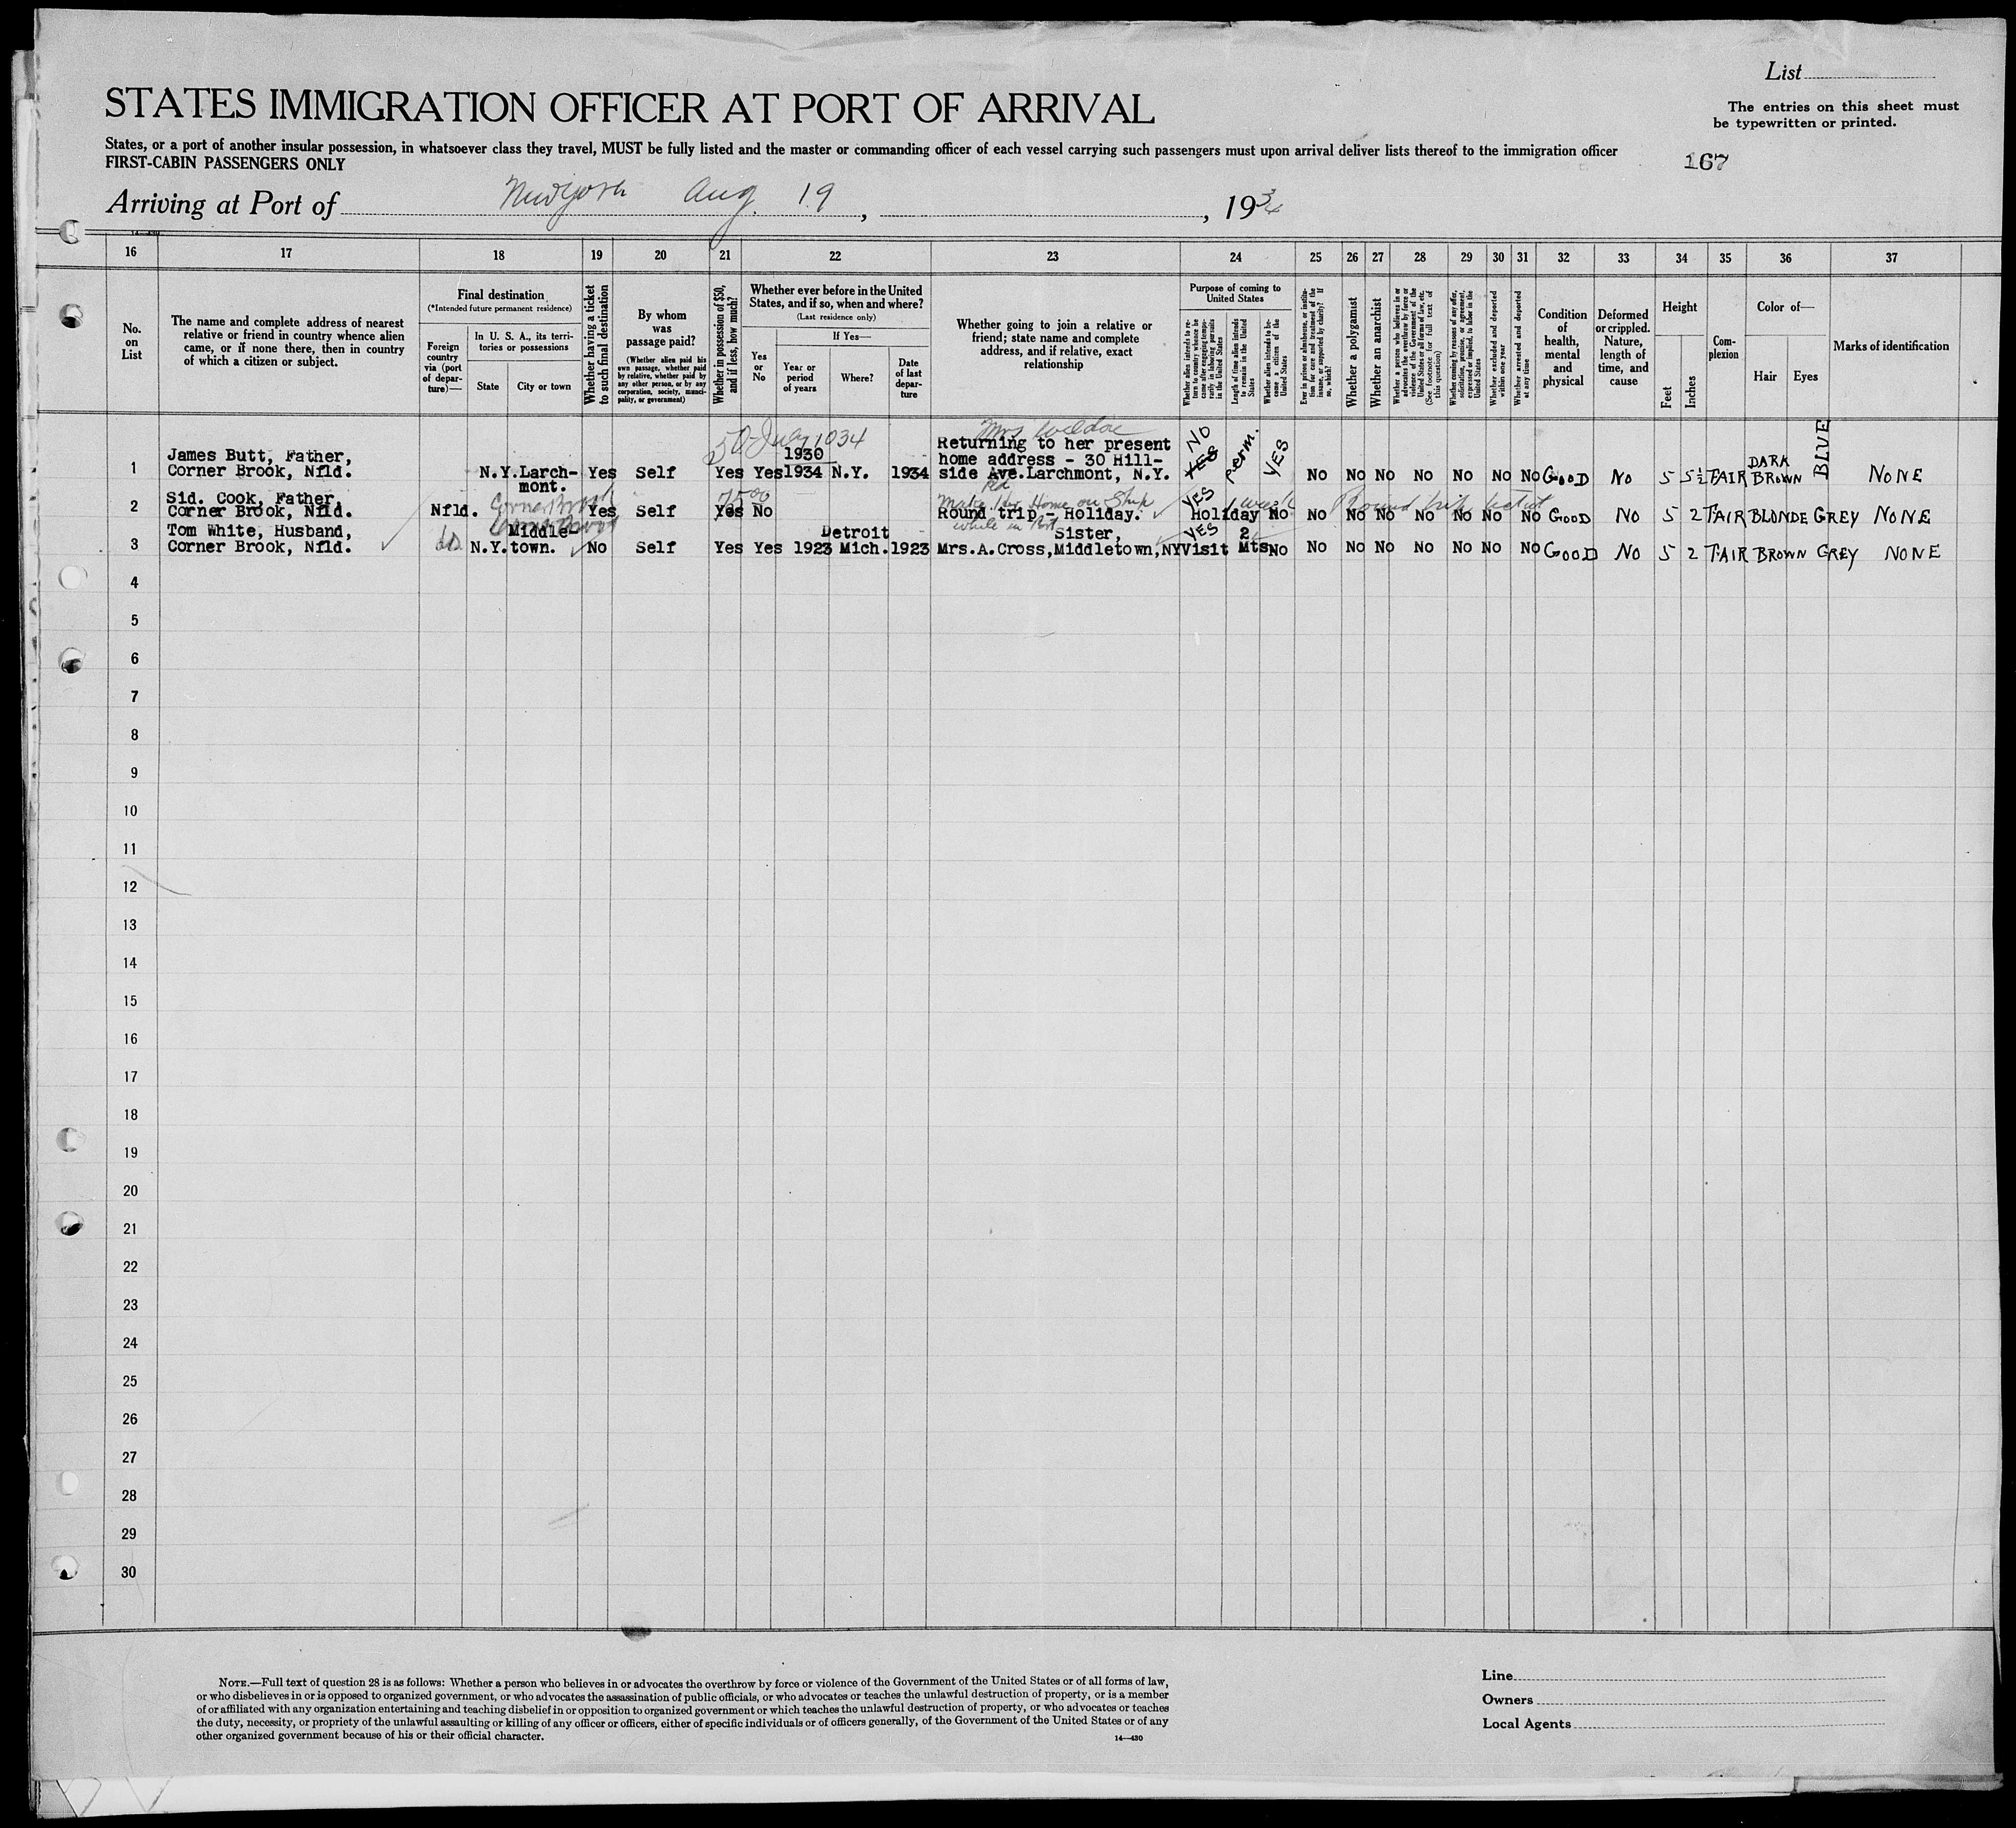 List
STATES IMMIGRATION OFFICER AT PORT OF ARRIVAL
The entries on this sheet must
be typewritten or printed.
States, or a port of another insular possession, in whatsoever class they travel, MUST be fully listed and the master or commanding officer of each vessel carrying such passengers must upon arrival deliver lists thereof to the immigration officer
FIRST-CABIN PASSENGERS ONLY
167
Arriving at Port of New York Aug 19, , 1934
16 17 18 19 20 21 22 23 24 25 26 27 28 29 30 31 32 33 34 35 36 37
No.
on
List
The name and complete address of nearest
relative or friend in country whence alien
came, or if none there, then in country
of which a citizen or subject.
Final destination
(*Intended future permanent residence)
Foreign
country
via (port
of depar-
ture)—
In U. S. A., its terri-
tories or possessions
State
City or town
Whether having a ticket
to such final destination
By whom
was
passage paid?
(Whether alien paid his
own passage, whether paid
by relative, whether paid by
any other person, or by any
corporation, society, munici-
pality, or government)
Whether in possession of $50,
and if less, how much?
Whether ever before in the United
States, and if so, when and where?
(Last residence only)
Yes
or
No
If Yes—
Year or
period
of years
Where?
Date
of last
depar-
ture
Whether going to join a relative or
friend; state name and complete
address, and if relative, exact
relationship
Purpose of coming to
United States
Whether alien intends to re-
turn to country whence he
came after engaging tempo-
rarily in laboring pursuits
in the United States
Length of time alien intends
to remain in the United
States
Whether alien intends to be-
come a citizen of the
United States
Ever in prison or almshouse, or institu-
tion for care and treatment of the
insane, or supported by charity? If
so, which?
Whether a polygamist
Whether an anarchist
Whether a person who believes in or
advocates the overthrow by force or
violence of the Government of the
United States or all forms of law, etc.
(See footnote for full text of
this question)
Whether coming by reasons of any offer,
solicitation, promise, or agreement,
expressed or implied, to labor in the
United States
Whether excluded and deported
within one year
Whether arrested and deported
at any time
Condition
of
health,
mental
and
physical
Deformed
or crippled.
Nature,
length of
time, and
cause
Height
Feet
Inches
Com-
plexion
Color of—
Hair
Eyes
Marks of identification
50 July 1934
Mrs
James Butt, Father,
1930
Returning to her present
home address - 30 Hill-
NO
perm.
YES
DARK
BLUE
1 Corner Brook, Nfld. N.Y. Larch- Yes Self Yes Yes 1934 N.Y. 1934 side Ave. Larchmont, N.Y. YES No No No No No No No GOOD NO 5 5½ FAIR BROWN NONE
mont.
Sid. Cook, Father,
Corner Brook
7500
Make her Home on Ship
YES
1 week
Round trip ticket
2 Corner Brook, Nfld. Nfld. Yes Self Yes No Round trip - Holiday. Holiday No No No No No No No No GOOD NO 5 2 FAIR BLONDE GREY NONE
while in Port
Tom White, Husband,
Middle-
Detroit
Sister,
YES
2
3 Corner Brook, Nfld. do N.Y. town. No Self Yes Yes 1923 Mich. 1923 Mrs.A.Cross,Middletown,NY Visit Mts No No No No No No No No GOOD NO 5 2 FAIR BROWN GREY NONE
4
5
6
7
8
9
10
11
12
13
14
15
16
17
18
19
20
21
22
23
24
25
26
27
28
29
30
NOTE.—Full text of question 28 is as follows: Whether a person who believes in or advocates the overthrow by force or violence of the Government of the United States or of all forms of law,
or who disbelieves in or is opposed to organized government, or who advocates the assassination of public officials, or who advocates or teaches the unlawful destruction of property, or is a member
of or affiliated with any organization entertaining and teaching disbelief in or opposition to organized government or which teaches the unlawful destruction of property, or who advocates or teaches
the duty, necessity, or propriety of the unlawful assaulting or killing of any officer or officers, either of specific individuals or of officers generally, of the Government of the United States or of any
other organized government because of his or their official character.
14—430
Line
Owners
Local Agents